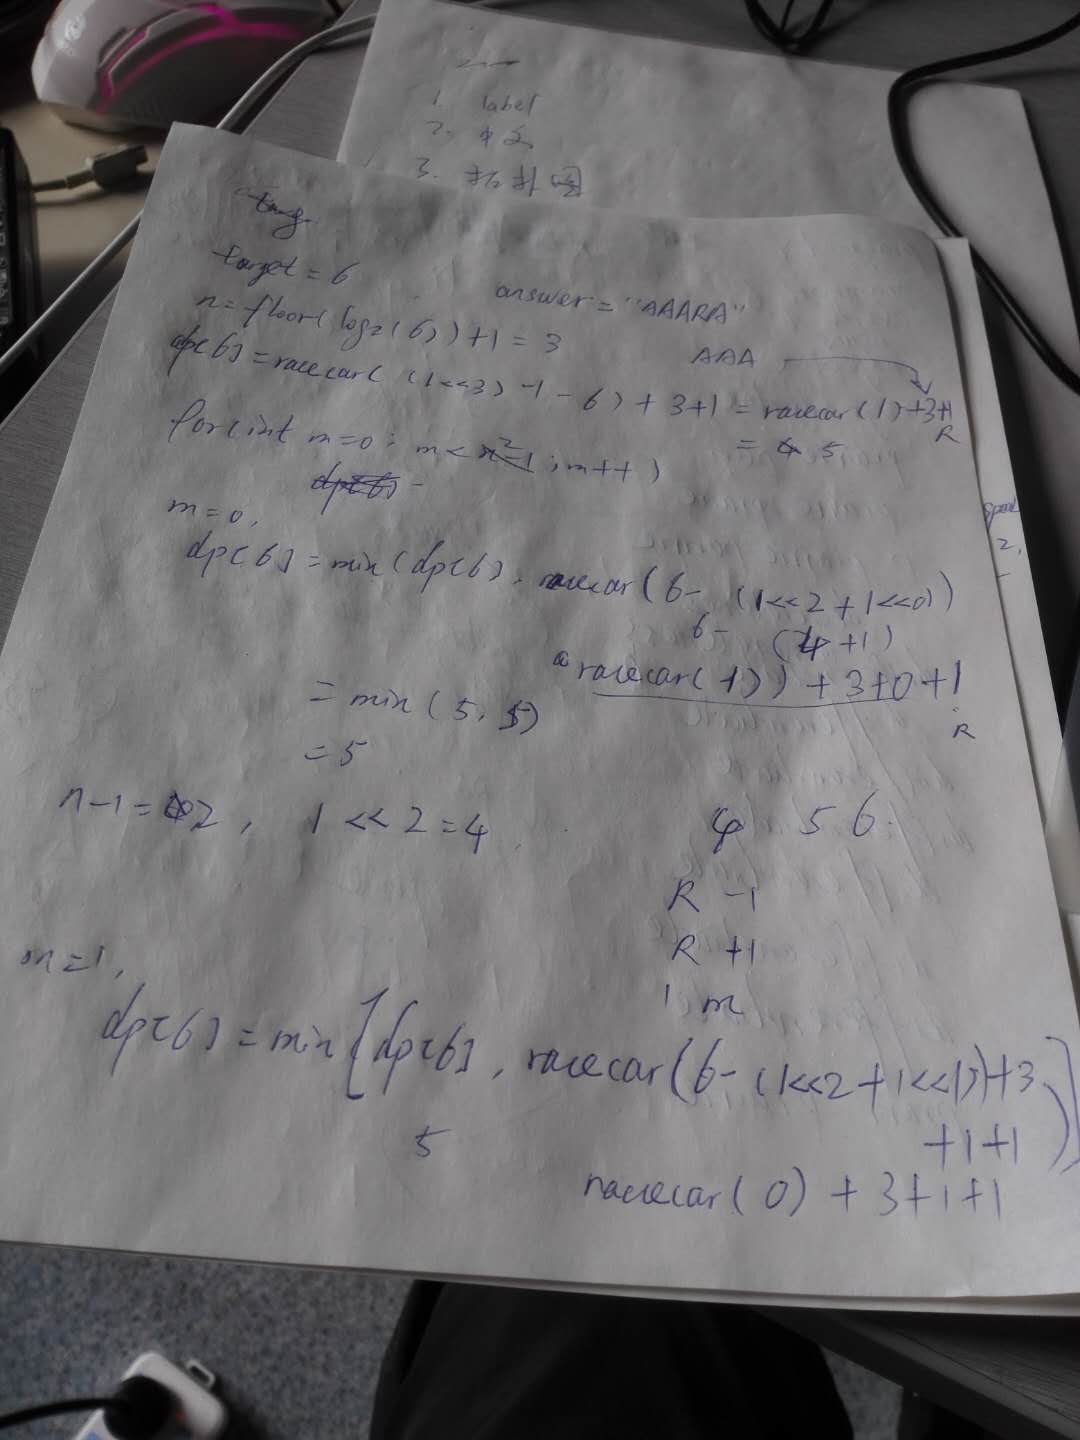 1. label
2.
3.
target = 6
answer = "AAARA"
n = floor(log2(6)) + 1 = 3
AAA
dp[6] = racecar((1<<3) - 1 - 6) + 3 + 1 = racecar(1) + 3 + 1
R
= 5
for(int m=0; m<2; m++)
m=0,
dp[6] = min(dp[6], racecar(6 - (1<<2 + 1<<0))
6 - (4 + 1)
racecar(1)) + 3 + 0 + 1
R
= min(5, 5)
= 5
n-1 = 2, 1<<2 = 4
4 5 6
R -1
R +1
1 m
m=1,
dp[6] = min[dp[6], racecar(6 - (1<<2 + 1<<1)) + 3
5
+1+1)]
racecar(0) + 3+1+1
speed
2,